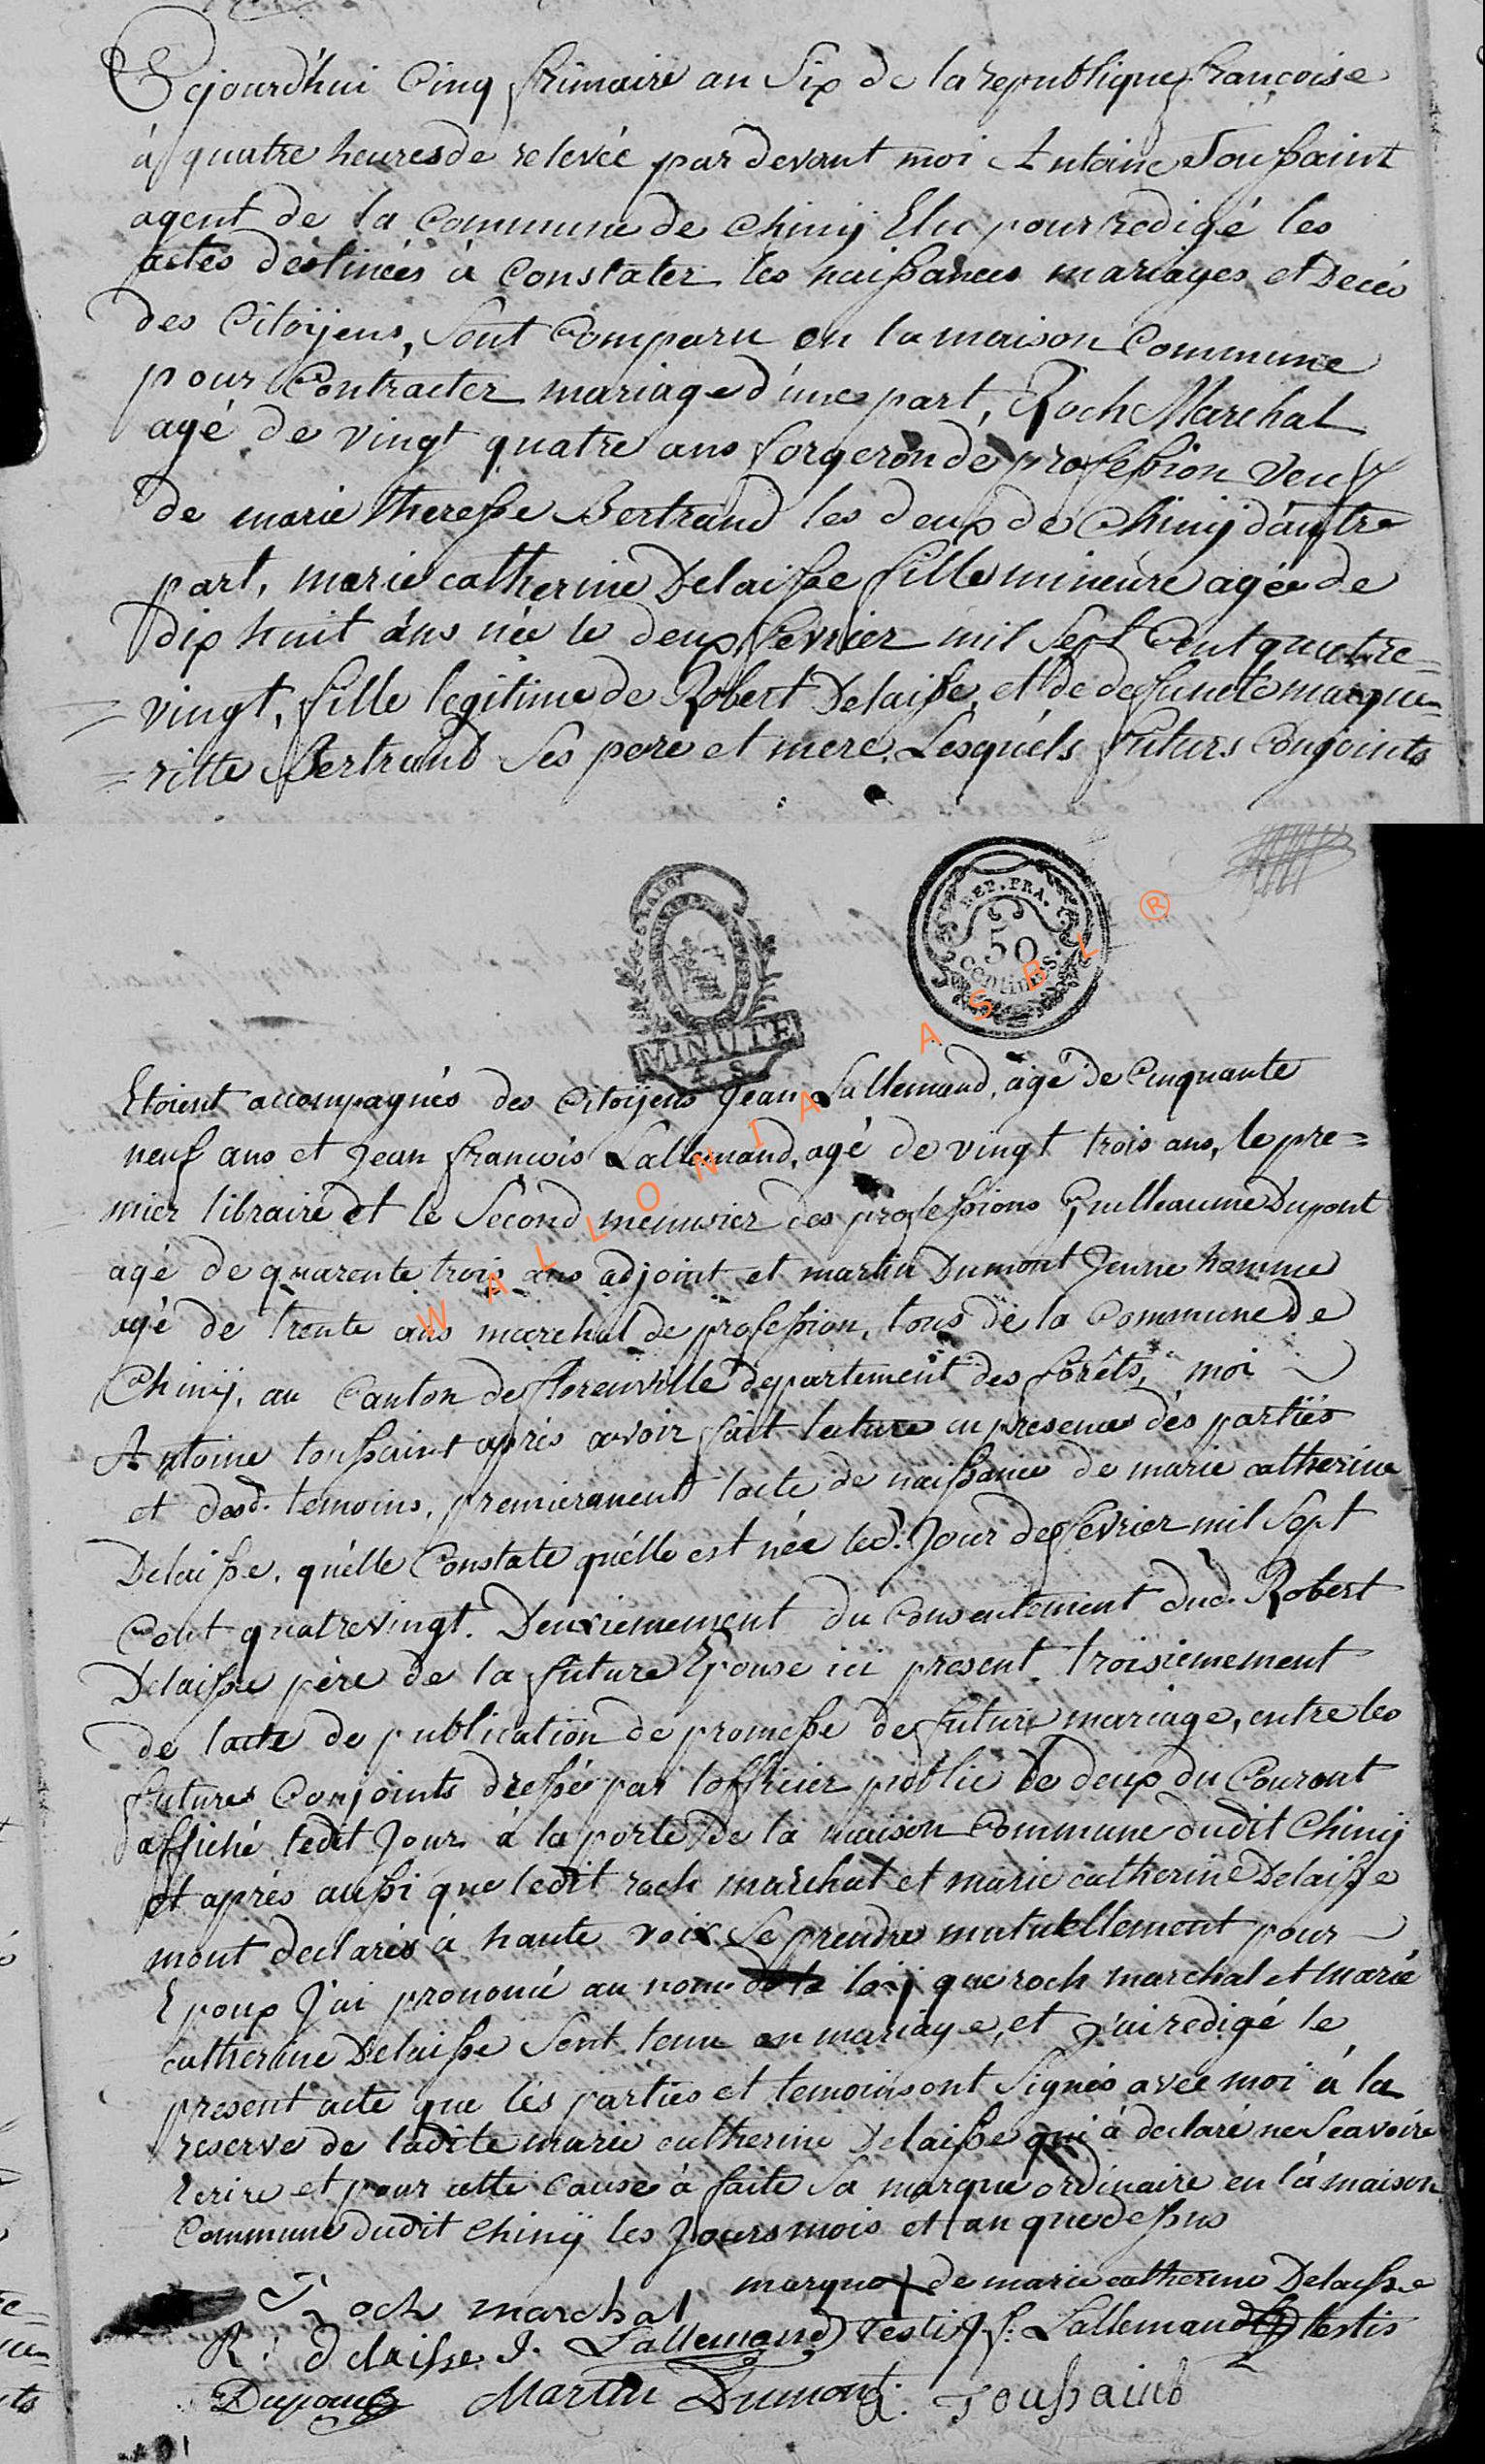 Cejourd'hui Cinq frimaire an Six de la republique françoise
à quatre heures de relevée par devant moi Antoine Toussaint
agent de la Commune de Chinÿ Elu pour redigé les
actes déstinées à Constater les naissances mariages et Decés
des Citoÿens, Sont Comparu en la maison Commune
pour Contracter mariage d'une part, Roch Marchal
agé de vingt quatre ans forgeron de profession veuf
de marie theresse Bertrand les deux de Chinÿ d'autre
part, marie catherine Delaisse fille mineure agée de
dix huit ans née le deux fevrier mil Sept Cent quatre=
=vingt, fille legitime de Robert Delaisse, et de defuncte margue=
=ritte Bertrand Ses pere et mere. Lesquéls futurs Conjoints
STALOI
MINUTE
4. S.
REP. FRA.
50
Centimes.
Etoient accompagnés des Citoÿens Jean Lallemand, agé de Cinquante
neuf ans et Jean françois Lallemand, agé de vingt trois ans, le pre=
mier libraire et le Second menuisier des professions Guilleaume Dupont
agé de quarente trois ans adjoint et martin Dumont Jeune homme
agé de trente ans marchal de profession, tous de la Commune de
Chinÿ, au Canton de florenville departement des forêts, moi
Antoine toussaint aprés avoir fait lecture en presence dés partiës
et desd. temoins, premierement lacte de naissance de marie catherine
Delaisse, qu'elle Constate qu'élle est née led. Jour de fevrier mil Sept
Cent quatrevingt. Deuxiemement du Consentement dud. Robert
Delaisse père de la future Epouse ici present. troisiemement
de lacte de publication de promesse de future mariage, entre les
futures Conjoints dressée par lofficier public le deux du Courant
affiché ledit Jour à la porte de la maison Commune dudit Chinÿ
et aprés aussi que ledit roch marchal et marie catherine Delaisse
mont declarés à haute voix Se prendre mutuellement pour
Epoux J'ai prononcé au nom de la loÿ que roch marchal et marie
catherine Delaisse Sont tenu en mariage, et J'ai redigé le
present acte que lés parties et temoins ont Signés avec moi à la
reserve de ladite marie catherine Delaisse qui à declaré ne Scavoire
Ecrire et pour cette Cause à faite Sa marque ordinaire en la maison
Commune dudit Chinÿ les Jours mois et an que dessus
Roch marchal marque X de marie catherine Delaisse
R: delaisse J. Lallemand testis J. f: Lallemand testis
Dupont Martin Dumont A. Toussaint
WALLONIA ASBL ®